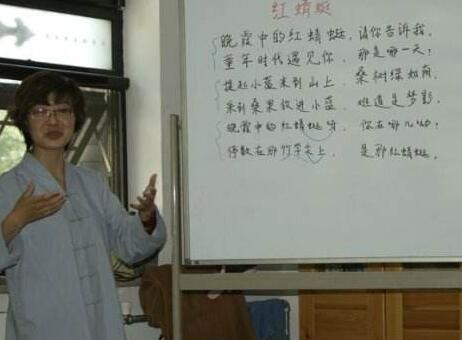 红蜻蜓
晚霞中的红蜻蜓，请你告诉我，
童年时代遇见你，那是哪一天？
提起小篮来到山上，桑树绿如荫，
采到桑果放进小篮，难道是梦影，
晚霞中的红蜻蜓呀，你在哪儿呦？
停歇在那竹竿尖上，是那红蜻蜓。